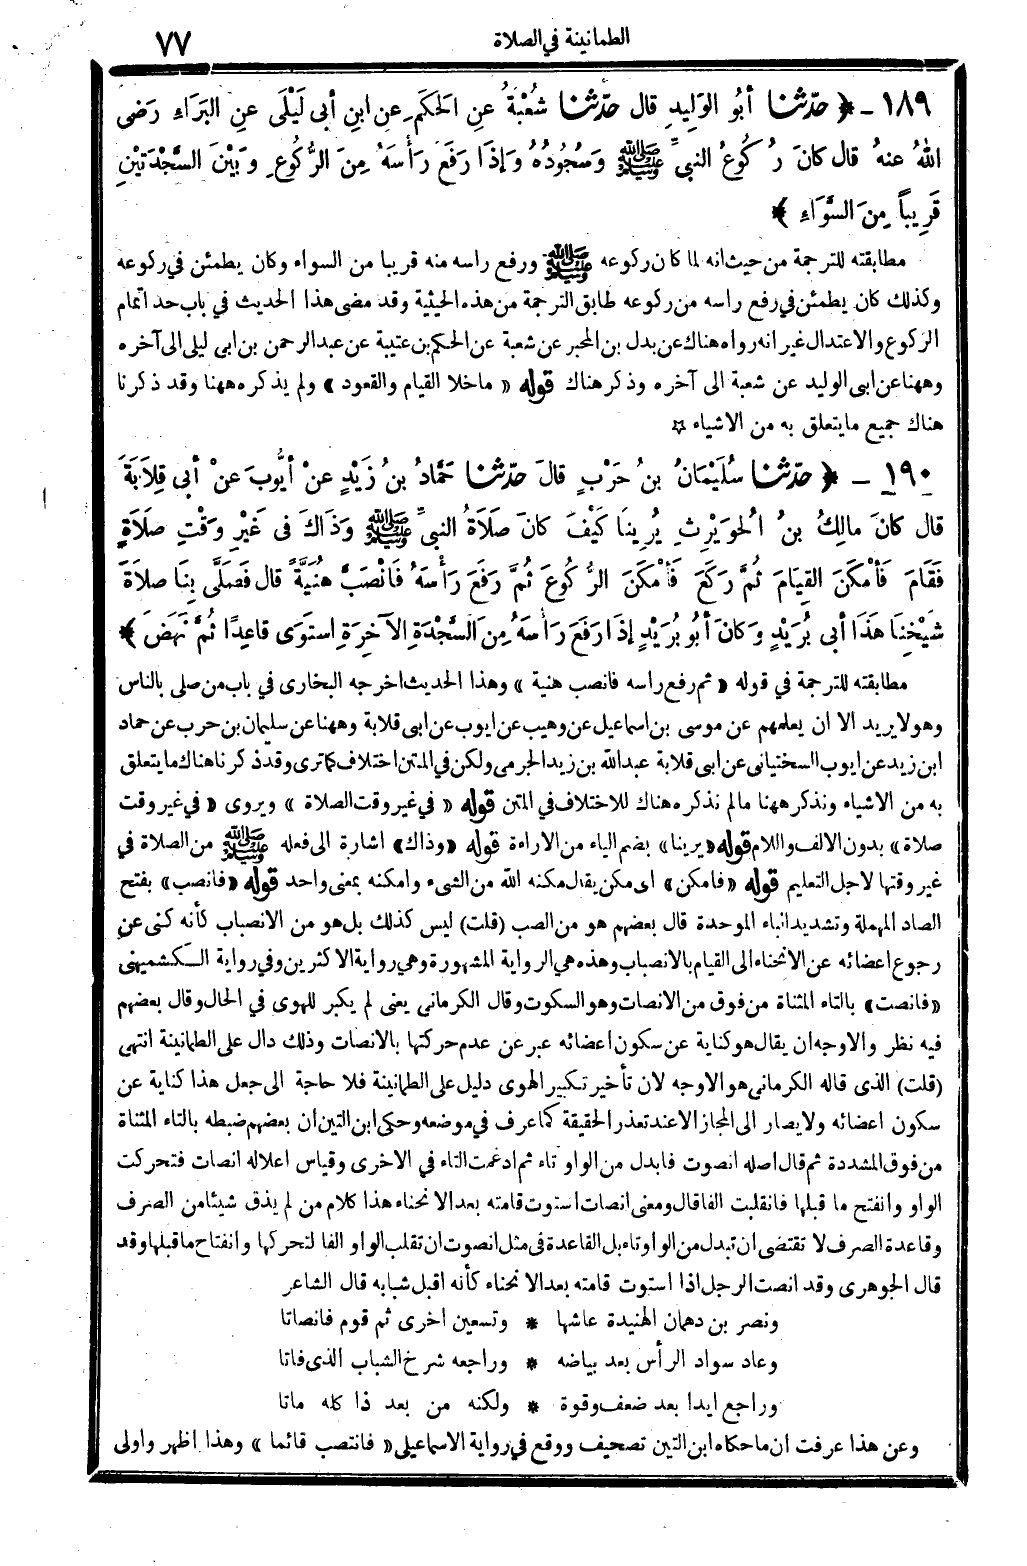 ٧٧
الطمانينة في الصلاة
١٨٩ - ﴿ حدّثنا أبُو الوَلِيدِ قال حدّثنا شُعْبَةُ عنِ الحَكَمِ عنِ ابنِ أبى لَيْلَى عنِ البَرَاءِ رَضى
اللهُ عنهُ قال كانَ رُكُوعُ النبىِّ ﷺ وَسُجُودُهُ وَإذَا رَفَعَ رَأْسَهُ مِنَ الرُّكُوعِ وَبَيْنَ السَّجْدَتَيْنِ
قَرِيباً مِنَ السَّوَاءِ ﴾
مطابقته للترجمة من حيث انه لما كان ركوعه ﷺ ورفع راسه منه قريبا من السواء وكان يطمئن في ركوعه
وكذلك كان يطمئن في رفع راسه من ركوعه طابق الترجمة من هذه الحيثية وقد مضى هذا الحديث في باب حد اتمام
الركوع والاعتدال غير انه رواه هناك عن بدل بن المحبر عن شعبة عن الحكم بن عتيبة عن عبد الرحمن بن ابى ليلى الى آخره
وههنا عن ابى الوليد عن شعبة الى آخره وذكر هناك قوله « ما خلا القيام والقعود » ولم يذكره ههنا وقد ذكرنا
هناك جميع ما يتعلق به من الاشياء ☆
١٩٠ - ﴿ حدّثنا سُلَيْمَانُ بنُ حَرْبٍ قالَ حدّثنا حَمَّادُ بنُ زَيْدٍ عنْ أيُّوبَ عنْ أبى قِلَابَةَ
قال كانَ مالِكُ بنُ الحُوَيْرِثِ يُرِينَا كَيْفَ كانَ صَلَاةُ النبىِّ ﷺ وَذَاكَ فى غَيْرِ وَقْتِ صَلَاةٍ
فَقَامَ فَأمْكَنَ القِيَامَ ثُمَّ رَكَعَ فَأمْكَنَ الرُّكُوعَ ثُمَّ رَفَعَ رَأْسَهُ فَانْصَبَّ هُنَيَّةً قال فَصَلَّى بِنَا صلاَةَ
شَيْخِنَا هَذَا أبى بُرَيْدٍ وَكانَ أبُو بُرَيْدٍ إذَا رَفَعَ رَأسَهُ مِنَ السَّجْدَةِ الآخِرَةِ استَوَى قاعِدًا ثُمَّ نَهَضَ ﴾
مطابقته للترجمة في قوله « ثم رفع راسه فانصب هنية » وهذا الحديث اخرجه البخارى في باب من صلى بالناس
وهو لا يريد الا ان يعلمهم عن موسى بن اسماعيل عن وهيب عن ايوب عن ابى قلابة وههنا عن سليمان بن حرب عن حماد
ابن زيد عن ايوب السختيانى عن ابى قلابة عبد الله بن زيد الجرمى ولكن في المتن اختلاف كما ترى وقد ذكرنا هناك ما يتعلق
به من الاشياء ونذكر ههنا مالم نذكره هناك للاختلاف في المتن قوله « في غير وقت الصلاة » ويروى « في غير وقت
صلاة » بدون الالف واللام قوله « يرينا » بضم الياء من الاراءة قوله « وذاك » اشارة الى فعله ﷺ من الصلاة في
غير وقتها لاجل التعليم قوله « فامكن » اى مكن يقال مكنه الله من الشىء وامكنه بمعنى واحد قوله « فانصب » بفتح
الصاد المهملة وتشديد الباء الموحدة قال بعضهم هو من الصب (قلت) ليس كذلك بل هو من الانصباب كأنه كنى عن
رجوع اعضائه عن الانحناء الى القيام بالانصباب وهذه هي الرواية المشهورة وهي رواية الاكثرين وفي رواية الكشميهنى
« فانصت » بالتاء المثناة من فوق من الانصات وهو السكوت وقال الكرمانى يعنى لم يكبر للهوى في الحال وقال بعضهم
فيه نظر والاوجه ان يقال هو كناية عن سكون اعضائه عبر عن عدم حركتها بالانصات وذلك دال على الطمانينة انتهى
(قلت) الذى قاله الكرمانى هو الاوجه لان تأخير تكبير الهوى دليل على الطمانينة فلا حاجة الى جعل هذا كناية عن
سكون اعضائه ولا يصار الى المجاز الا عند تعذر الحقيقة كما عرف في موضعه وحكى ابن التين ان بعضهم ضبطه بالتاء المثناة
من فوق المشددة ثم قال اصله انصوت فابدل من الواو تاء ثم ادغمت التاء في الاخرى وقياس اعلاله انصات فتحركت
الواو وانفتح ما قبلها فانقلبت الفا قال ومعنى انصات استوت قامته بعد الانحناء هذا كلام من لم يذق شيئا من الصرف
وقاعدة الصرف لا تقتضى ان تبدل من الواو تاء بل القاعدة فى مثل انصوت ان تقلب الواو الفا لتحركها وانفتاح ما قبلها وقد
قال الجوهرى وقد انصت الرجل اذا استوت قامته بعد الانحناء كأنه اقبل شبابه قال الشاعر
ونصر بن دهمان الهنيدة عاشها * وتسعين اخرى ثم قوم فانصاتا
وعاد سواد الرأس بعد بياضه * وراجعه شرخ الشباب الذى فاتا
وراجع ايدا بعد ضعف وقوة * ولكنه من بعد ذا كله ماتا
وعن هذا عرفت ان ما حكاه ابن التين تصحيف ووقع في رواية الاسماعيلى « فانتصب قائما » وهذا اظهر واولى